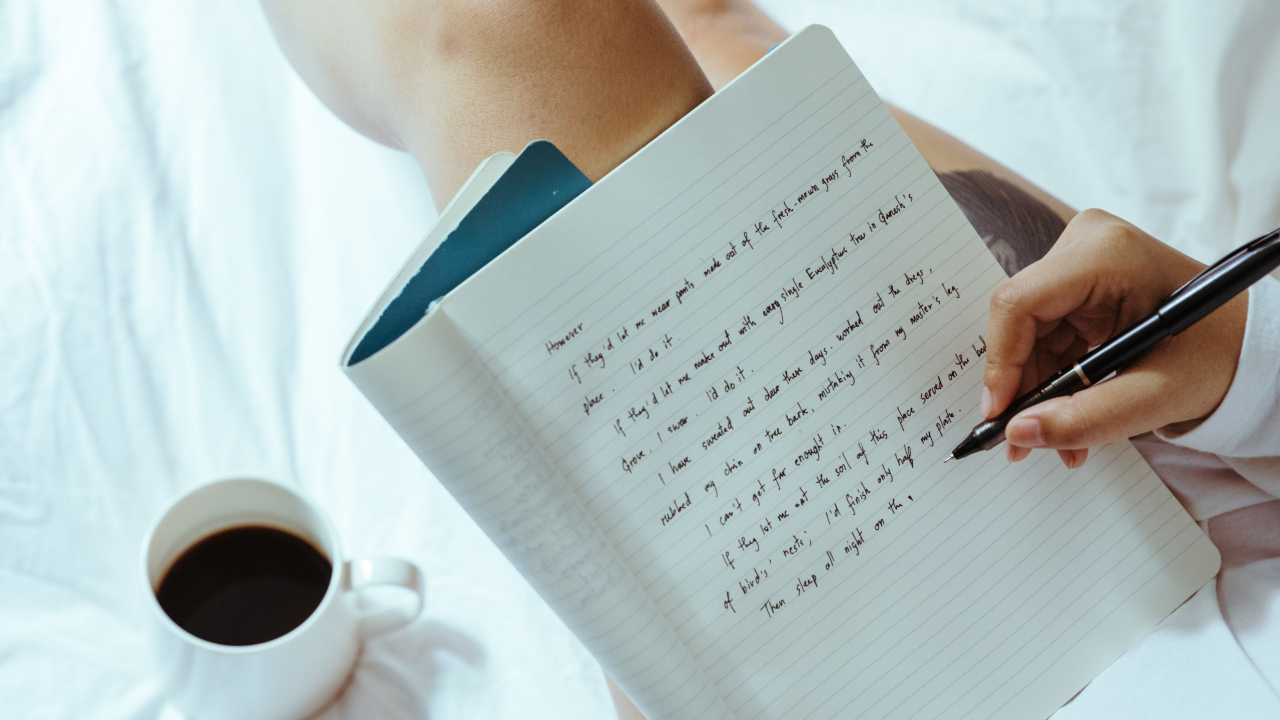 However
If they'd let me wear pants made out of the fresh-mown grass from the
place. I'd do it.
If they'd let me make out with every single Eucalyptus tree in Ganesh's
Grove, I swear. I'd do it.
I have sweated out dew these days. worked out the dregs,
rubbed my chin on tree bark, mistaking it from my master's leg
I can't get far enought in.
If they let me eat the soil of this place served on the
of bird's' nests; I'd finish only half my plate.
Then sleep all night on the